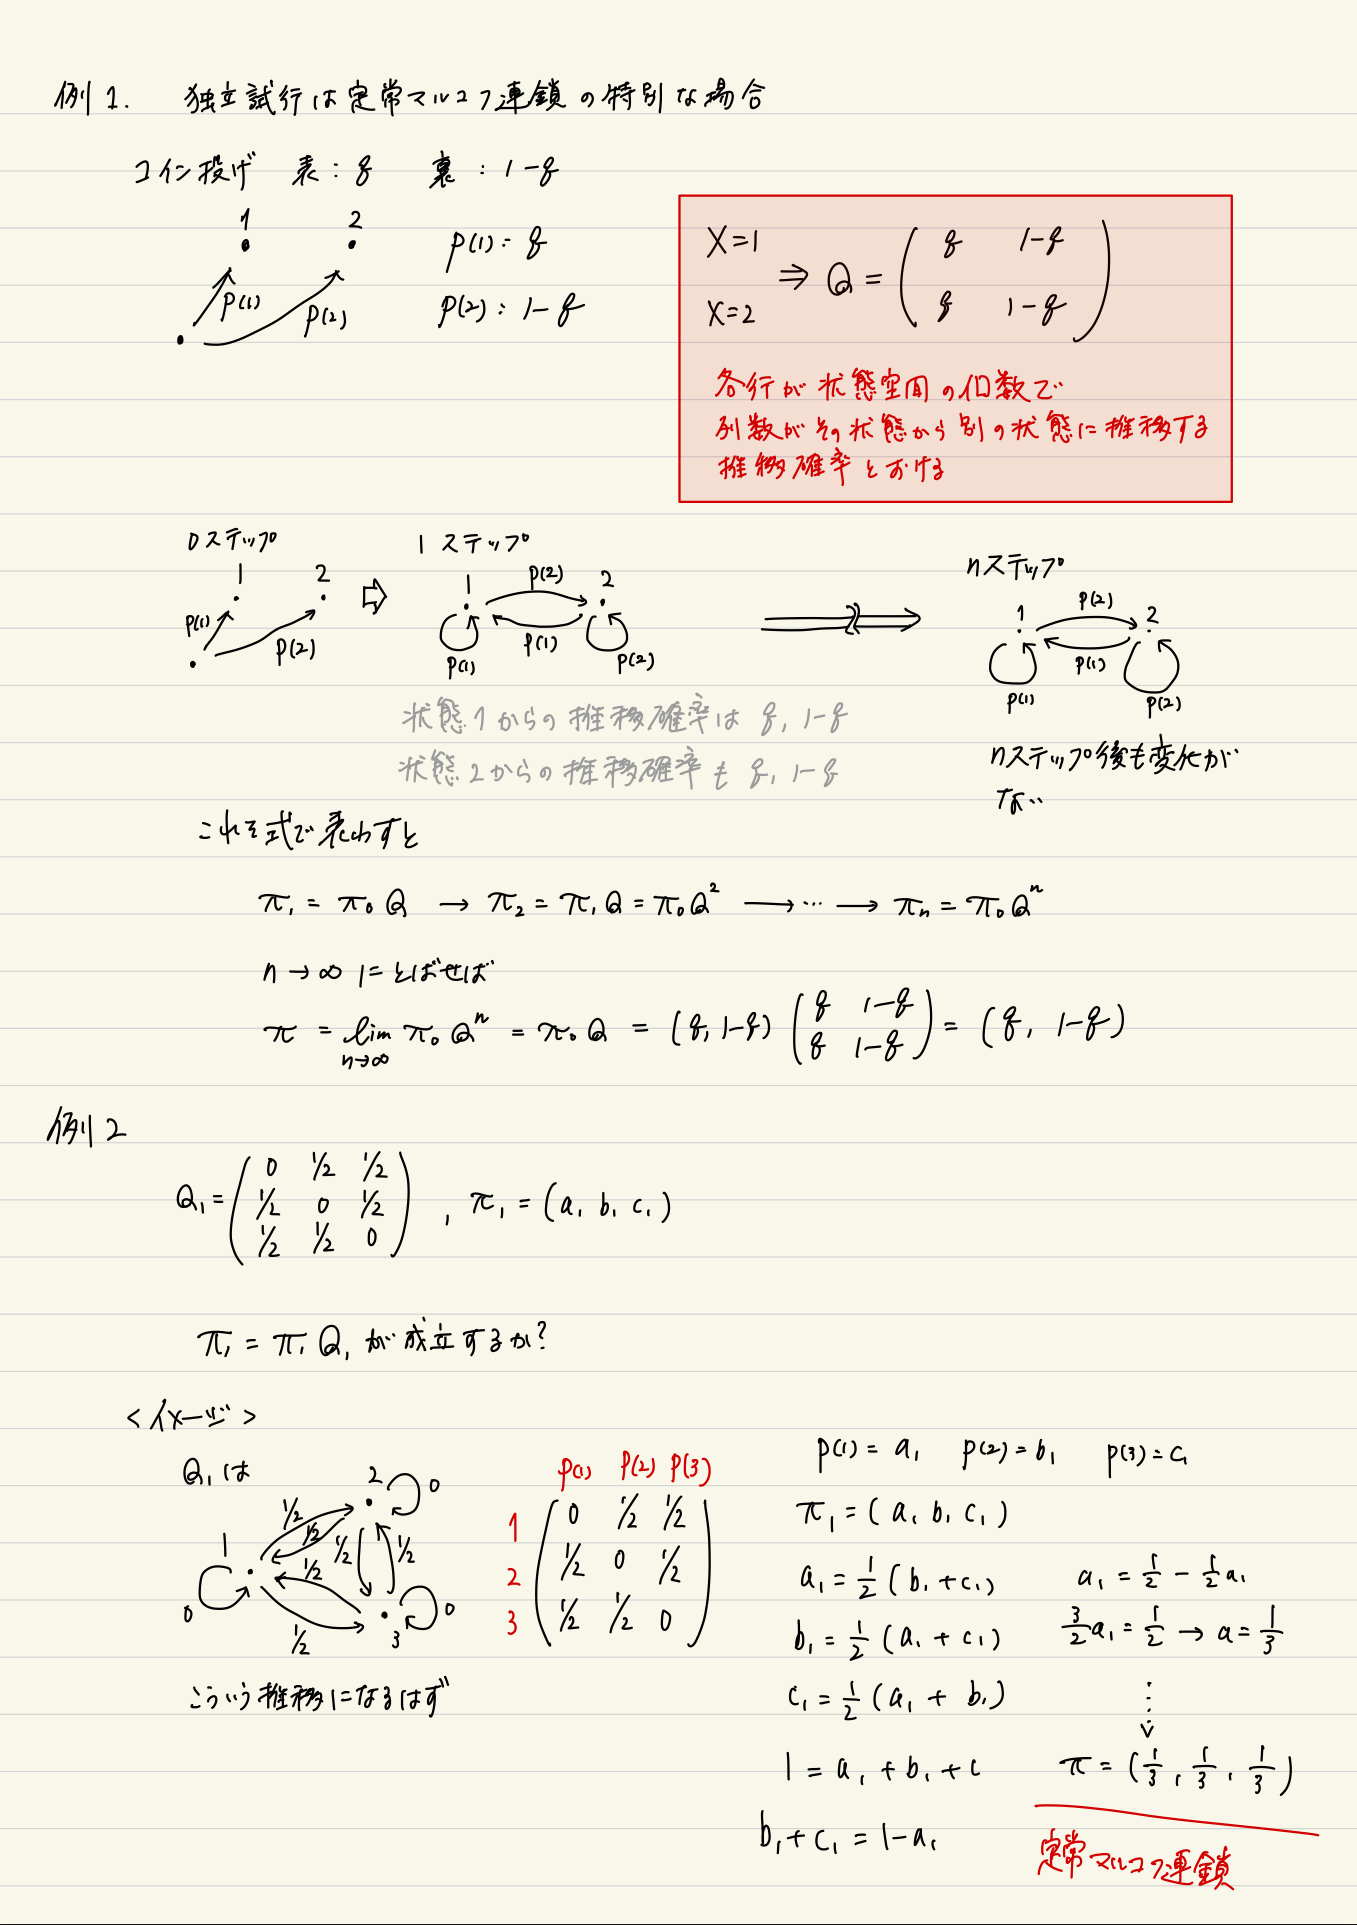 例1. 独立試行は定常マルコフ連鎖の特別な場合
コイン投げ 表：q 裏：1-q
1 2
p(1)
p(2)
p(1): q
p(2): 1-q
X=1
X=2
⇒ Q = ( q 1-q
q 1-q )
各行が状態空間の個数で
列数がその状態から別の状態に推移する
推移確率とおける
0ステップ
1 2
p(1)
p(2)
⇨
1ステップ
1 2
p(2)
p(1)
p(1)
p(2)
nステップ
1 2
p(2)
p(1)
p(1)
p(2)
状態1からの推移確率は q, 1-q
状態2からの推移確率も q, 1-q
nステップ後も変化が
ない
これを式で表わすと
π₁ = π₀Q → π₂ = π₁Q = π₀Q² → ⋯ → πₙ = π₀Qⁿ
n→∞ にとばせば
π = lim n→∞ π₀Qⁿ = π₀Q = (q, 1-q) ( q 1-q
q 1-q ) = (q, 1-q)
例2
Q₁ = ( 0 1/2 1/2
1/2 0 1/2
1/2 1/2 0 ) , π₁ = (a₁ b₁ c₁)
π₁ = π₁Q₁ が成立するか?
<イメージ>
Q₁は
1 2 3
0 0 0
1/2 1/2 1/2 1/2 1/2 1/2
こういう推移になるはず
p(1) p(2) p(3)
1 ( 0 1/2 1/2
2 1/2 0 1/2
3 1/2 1/2 0 )
p(1) = a₁ p(2) = b₁ p(3) = c₁
π₁ = (a₁ b₁ c₁)
a₁ = 1/2 (b₁ + c₁)
b₁ = 1/2 (a₁ + c₁)
c₁ = 1/2 (a₁ + b₁)
1 = a₁ + b₁ + c
b₁ + c₁ = 1 - a₁
a₁ = 1/2 - 1/2 a₁
3/2 a₁ = 1/2 → a = 1/3
π = (1/3, 1/3, 1/3)
定常マルコフ連鎖